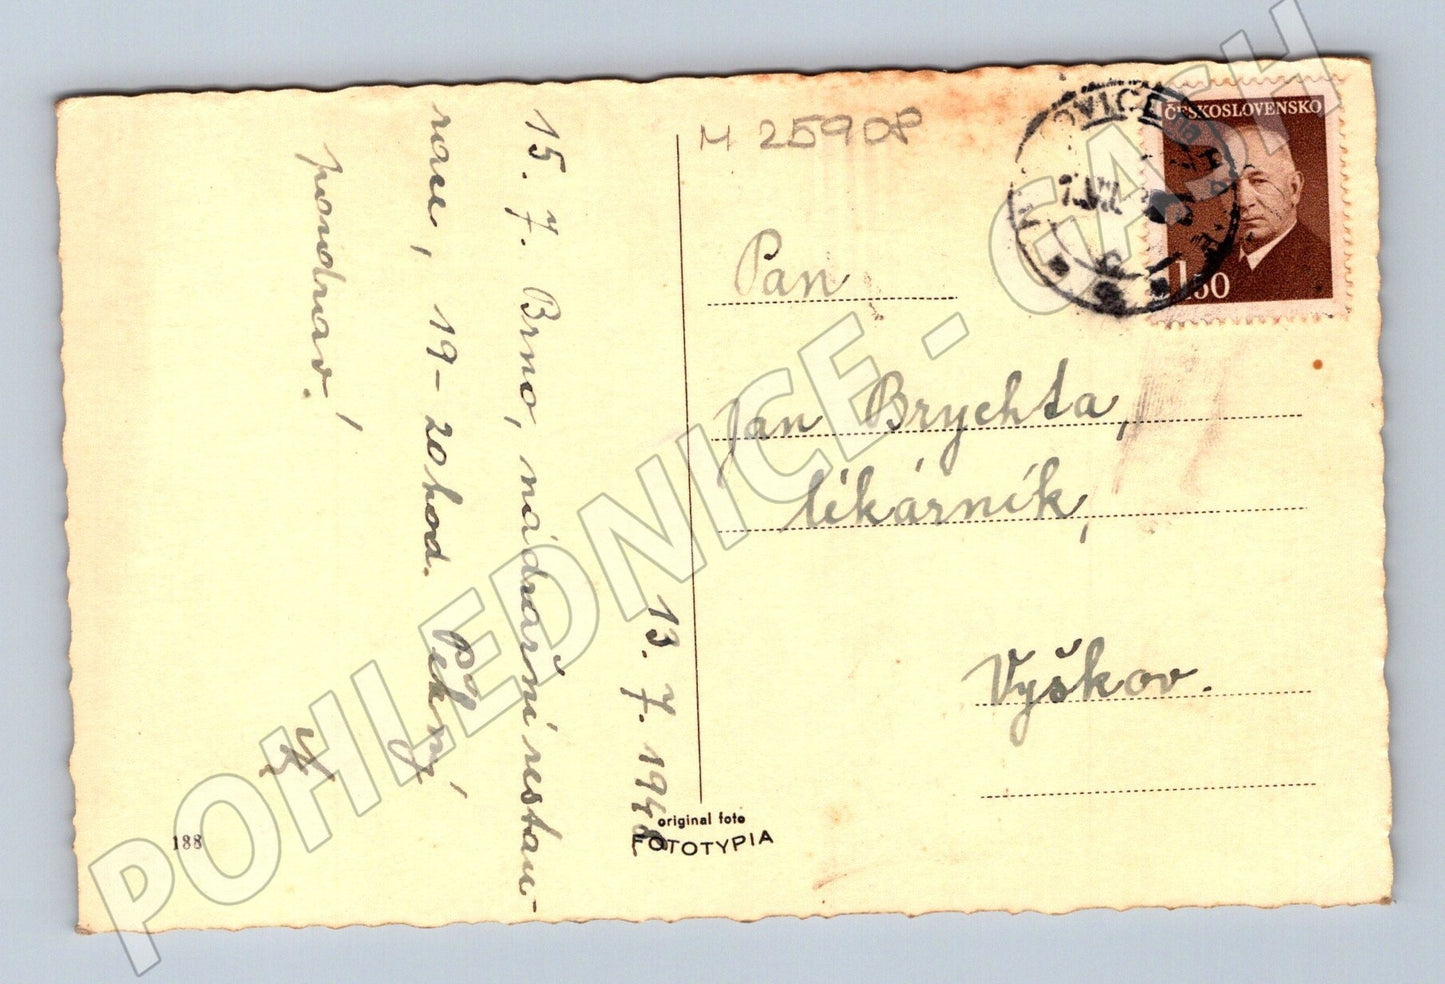 13. 7. 1948
15. 7. Brno, nádražní restau-
race, 19-20 hod. Pěkný
pozdrav!
M 25908
Pan
Jan Brychta,
lékárník,
Vyškov.
ČESKOSLOVENSKO
1.50
OVICE
original foto
FOTOTYPIA
188
POHLEDNICE - GASH